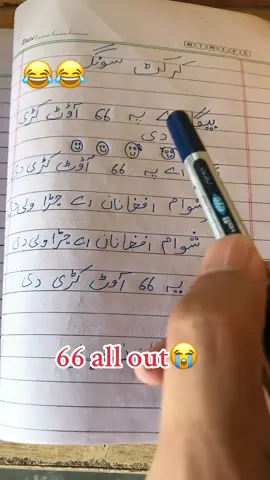 Date:
M T W T F S
کرکټ سونګز
😂😂
اے په 66 آؤٹ کڑی
دی
اے په 66 آؤٹ کڑی دی
شوام افغانان اے جڑا ولی دی
شوام افغانان اے جڑا ولی دی
په 66 آوٹ کڑی دی
66 all out😭